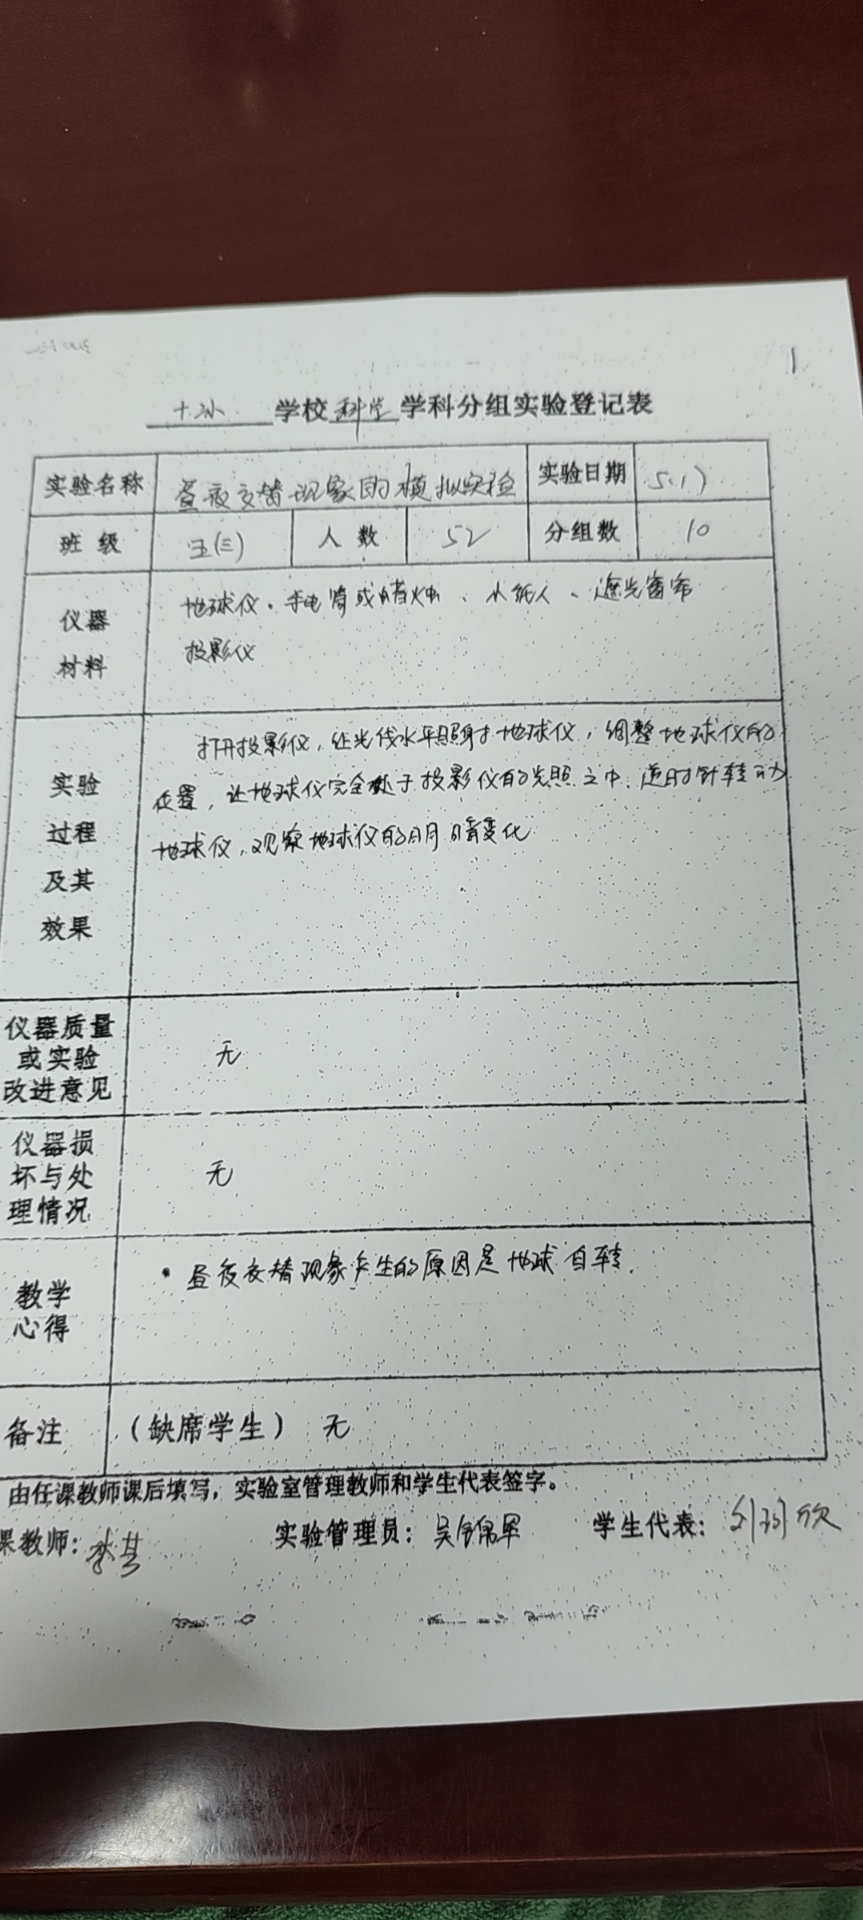 十小 学校 科学 学科分组实验登记表
1
实验名称 昼夜交替现象的模拟实验 实验日期 5.17
班级 五(三) 人数 52 分组数 10
仪器
材料
地球仪、手电筒或蜡烛、小纸人、遮光窗帘
投影仪
实验
过程
及其
效果
打开投影仪,让光线水平照射于地球仪,调整地球仪的
位置,让地球仪完全处于投影仪的光照之中.逆时针转动
地球仪,观察地球仪的明暗变化
仪器质量
或实验
改进意见
无
仪器损
坏与处
理情况
无
教学
心得
昼夜交替现象产生的原因是地球自转.
备注 (缺席学生) 无
由任课教师课后填写,实验室管理教师和学生代表签字。
课教师: 实验管理员: 学生代表: